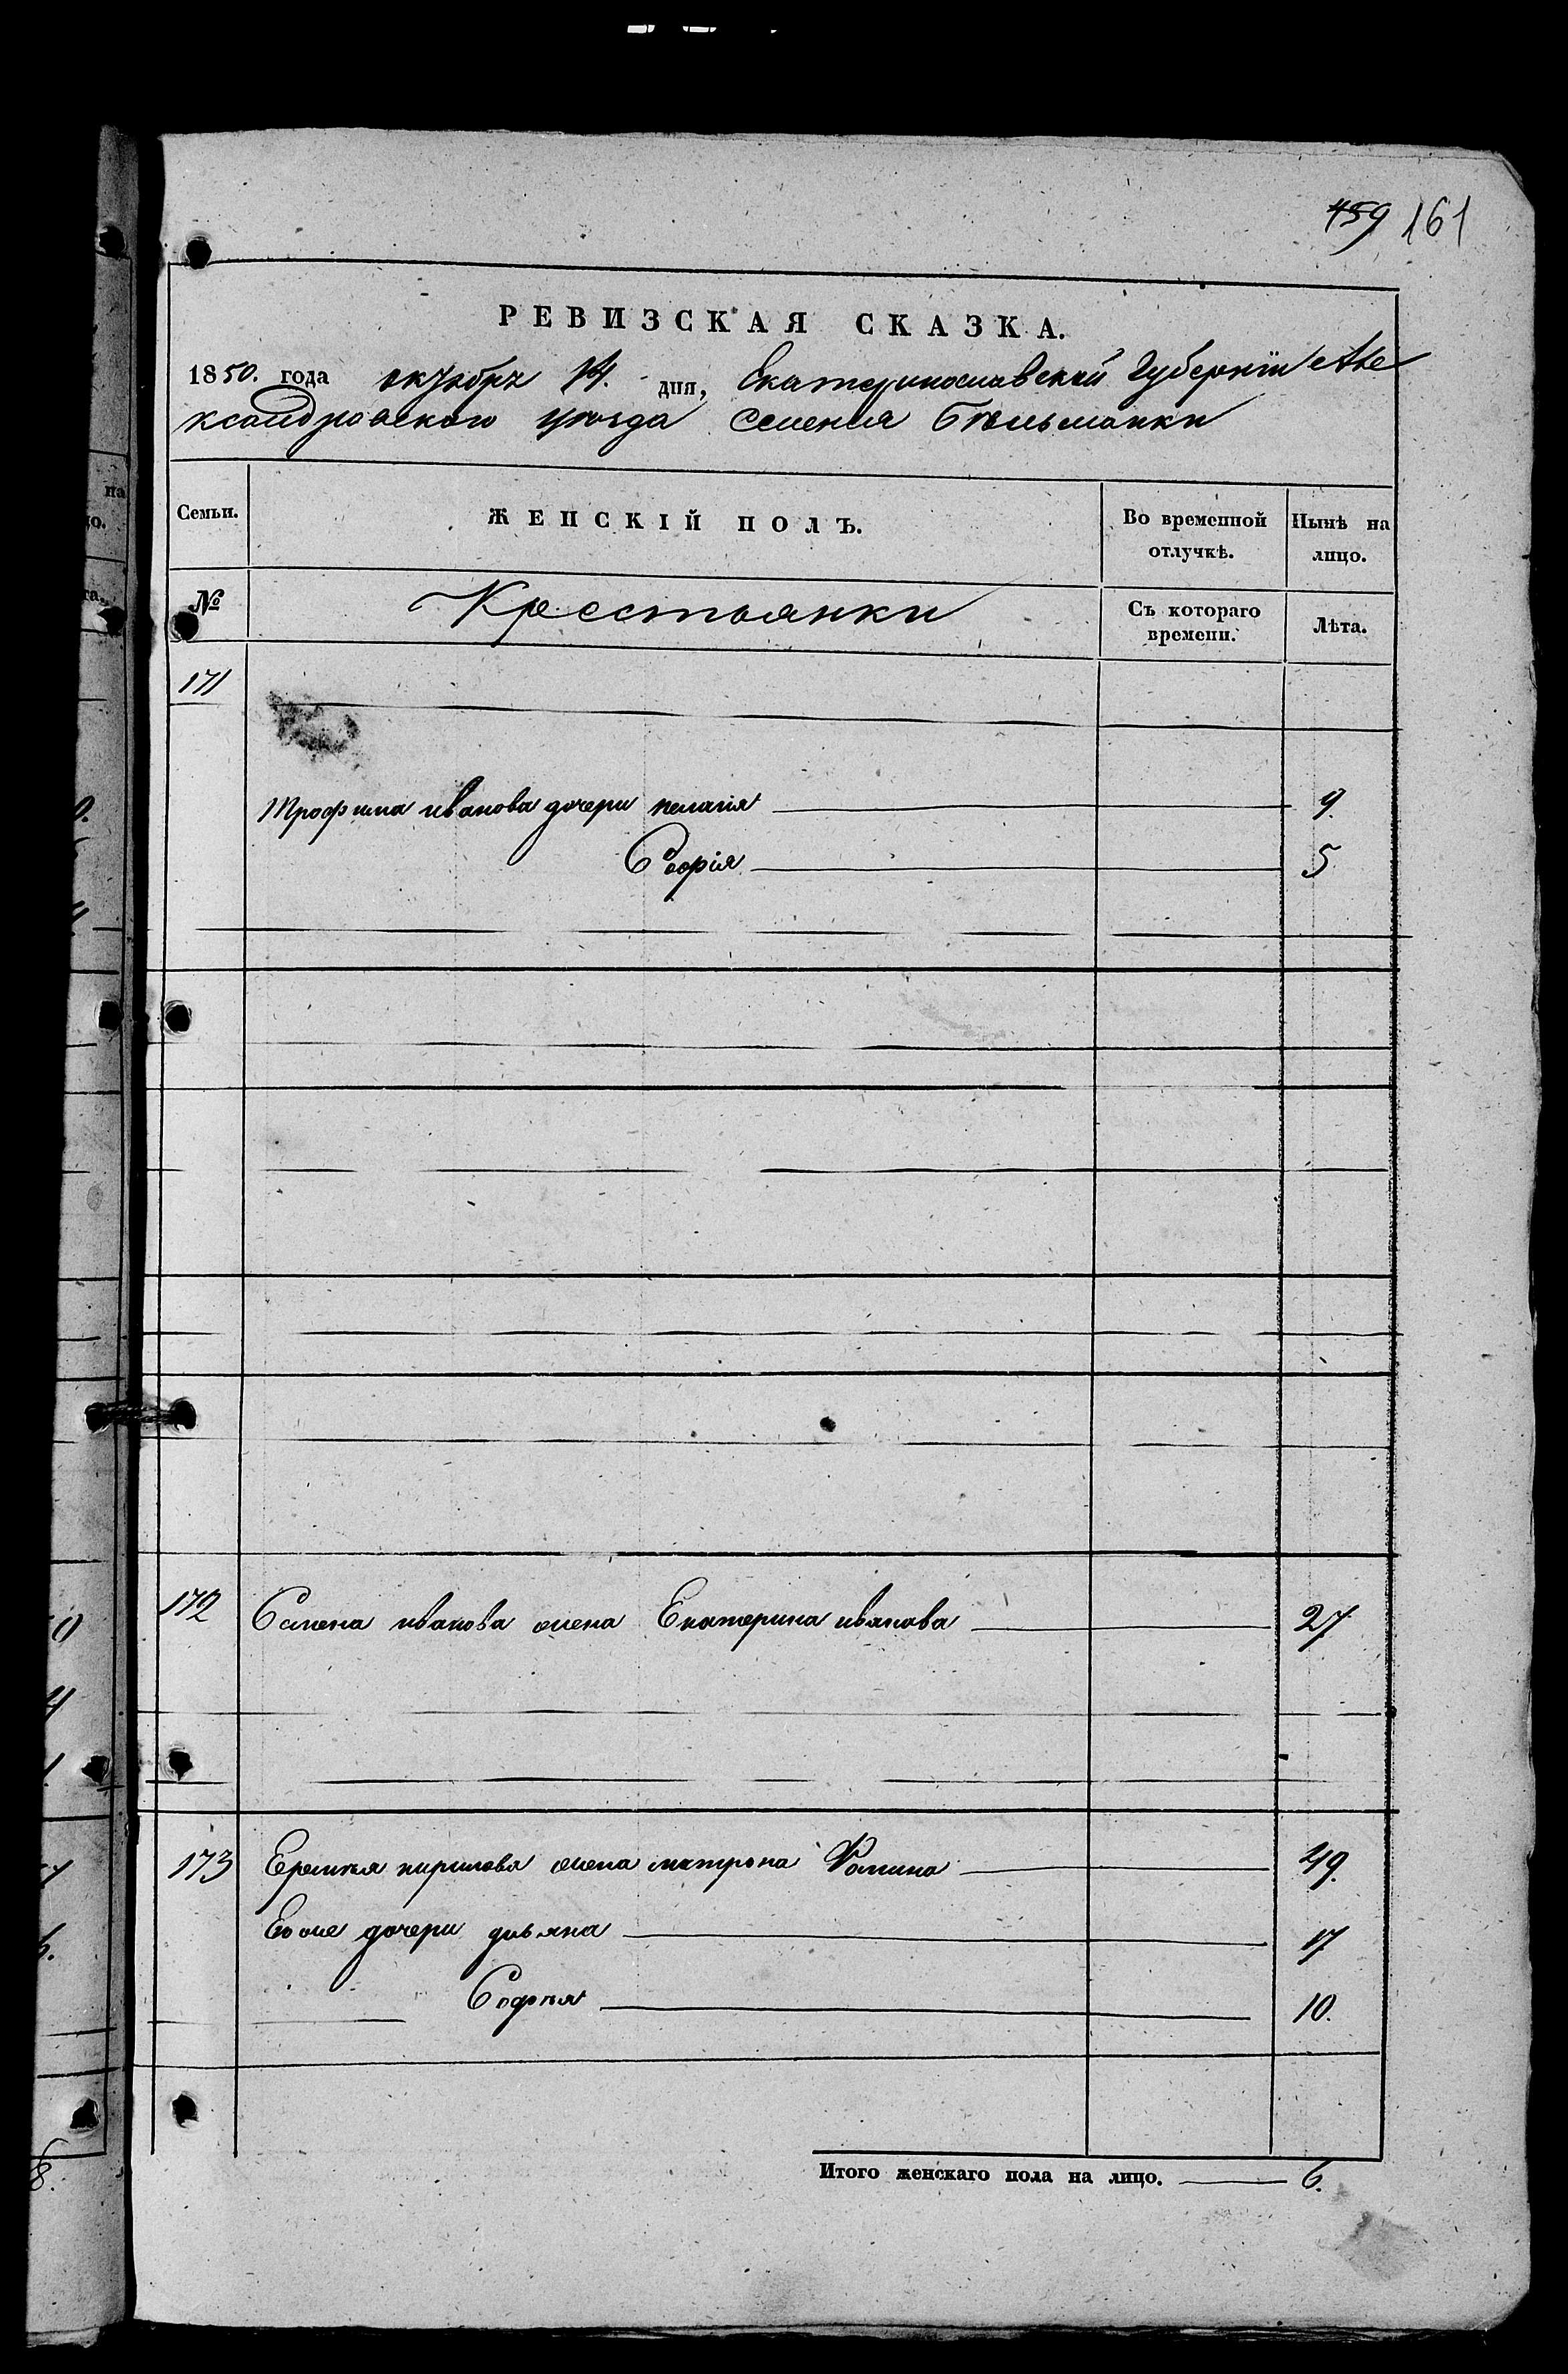 459 161
РЕВИЗСКАЯ СКАЗКА.
1850. года октября 14. дня, Екатеринославской Губернїи Але
ксандровского уѣзда Селенія Бѣльманки
Семьи. ЖЕНСКІЙ ПОЛЪ. Во временной отлучкѣ. Нынѣ на лицо.
№ Крестьянки Съ котораго времени. Лѣта.
171
Трофима иванова дочери пелагія 9.
Софія 5
172 Семена иванова жена Екатерина иванова 27
173 Еремѣя кирилова жена матрона Фомина 49.
Его же дочери 17
Софія 10.
Итого женскаго пола на лицо. 6.
на
цо.
та.
0.
4
8.